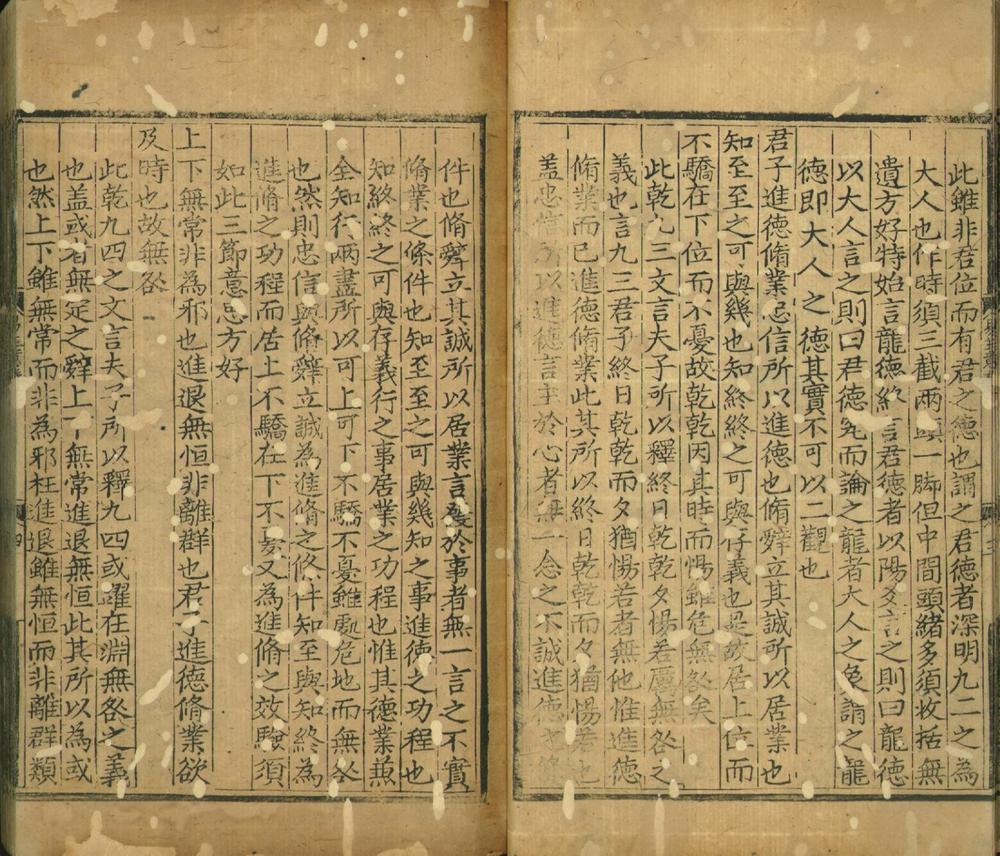 此雖非君位而有君之德也謂之君德者深明九二之為
大人也作時須三截兩頭一脚但中間頭緒多須收括無
遺方好特始言龍德終言君德者以陽爻言之則曰龍德
以大人言之則曰君德究而論之龍者大人之象謂之龍
德即大人之德其實不可以二觀也
君子進德脩業忠信所以進德也脩辭立其誠所以居業也
知至至之可與幾也知終終之可與存義也是故居上位而
不驕在下位而不憂故乾乾因其時而惕雖危無咎矣
此乾九三文言夫子所以釋終日乾乾夕惕若厲無咎之
義也言九三君子終日乾乾而夕猶惕若者無他惟進德
脩業而已進德脩業此其所以終日乾乾而夕猶惕若也
盖忠信所以進德言主於心者無一念之不誠進德之條
件也脩辭立其誠所以居業言發於事者無一言之不實
脩業之條件也知至至之可與幾知之事進德之功程也
知終終之可與存義行之事居業之功程也惟其德業兼
全知行兩盡所以可上可下不驕不憂雖處危地而無咎
也然則忠信與脩辭立誠為進脩之條件知至與知終為
進脩之功程而居上不驕在下不憂又為進脩之效驗須
如此三節意思方好
上下無常非為邪也進退無恒非離群也君子進德脩業欲
及時也故無咎
此乾九四之文言夫子所以釋九四或躍在淵無咎之義
也盖或者無定之辭上下無常進退無恒此其所以為或
也然上下雖無常而非為邪枉進退雖無恒而非離群類